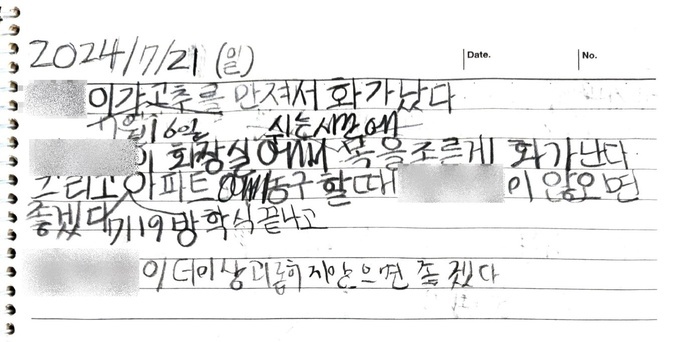 2024/7/21 (일)
Date.
No.
이가 고추를 만져서 화가 났다
7월 16일 쉬는시간에
이 화장실에서 목을 조르게 화가난다
그리고 아파트에서 농구 할때 이 않오면
좋겠다 7/19 방학식 끝나고
이 더이상 괴롭히지않으면 좋겠다